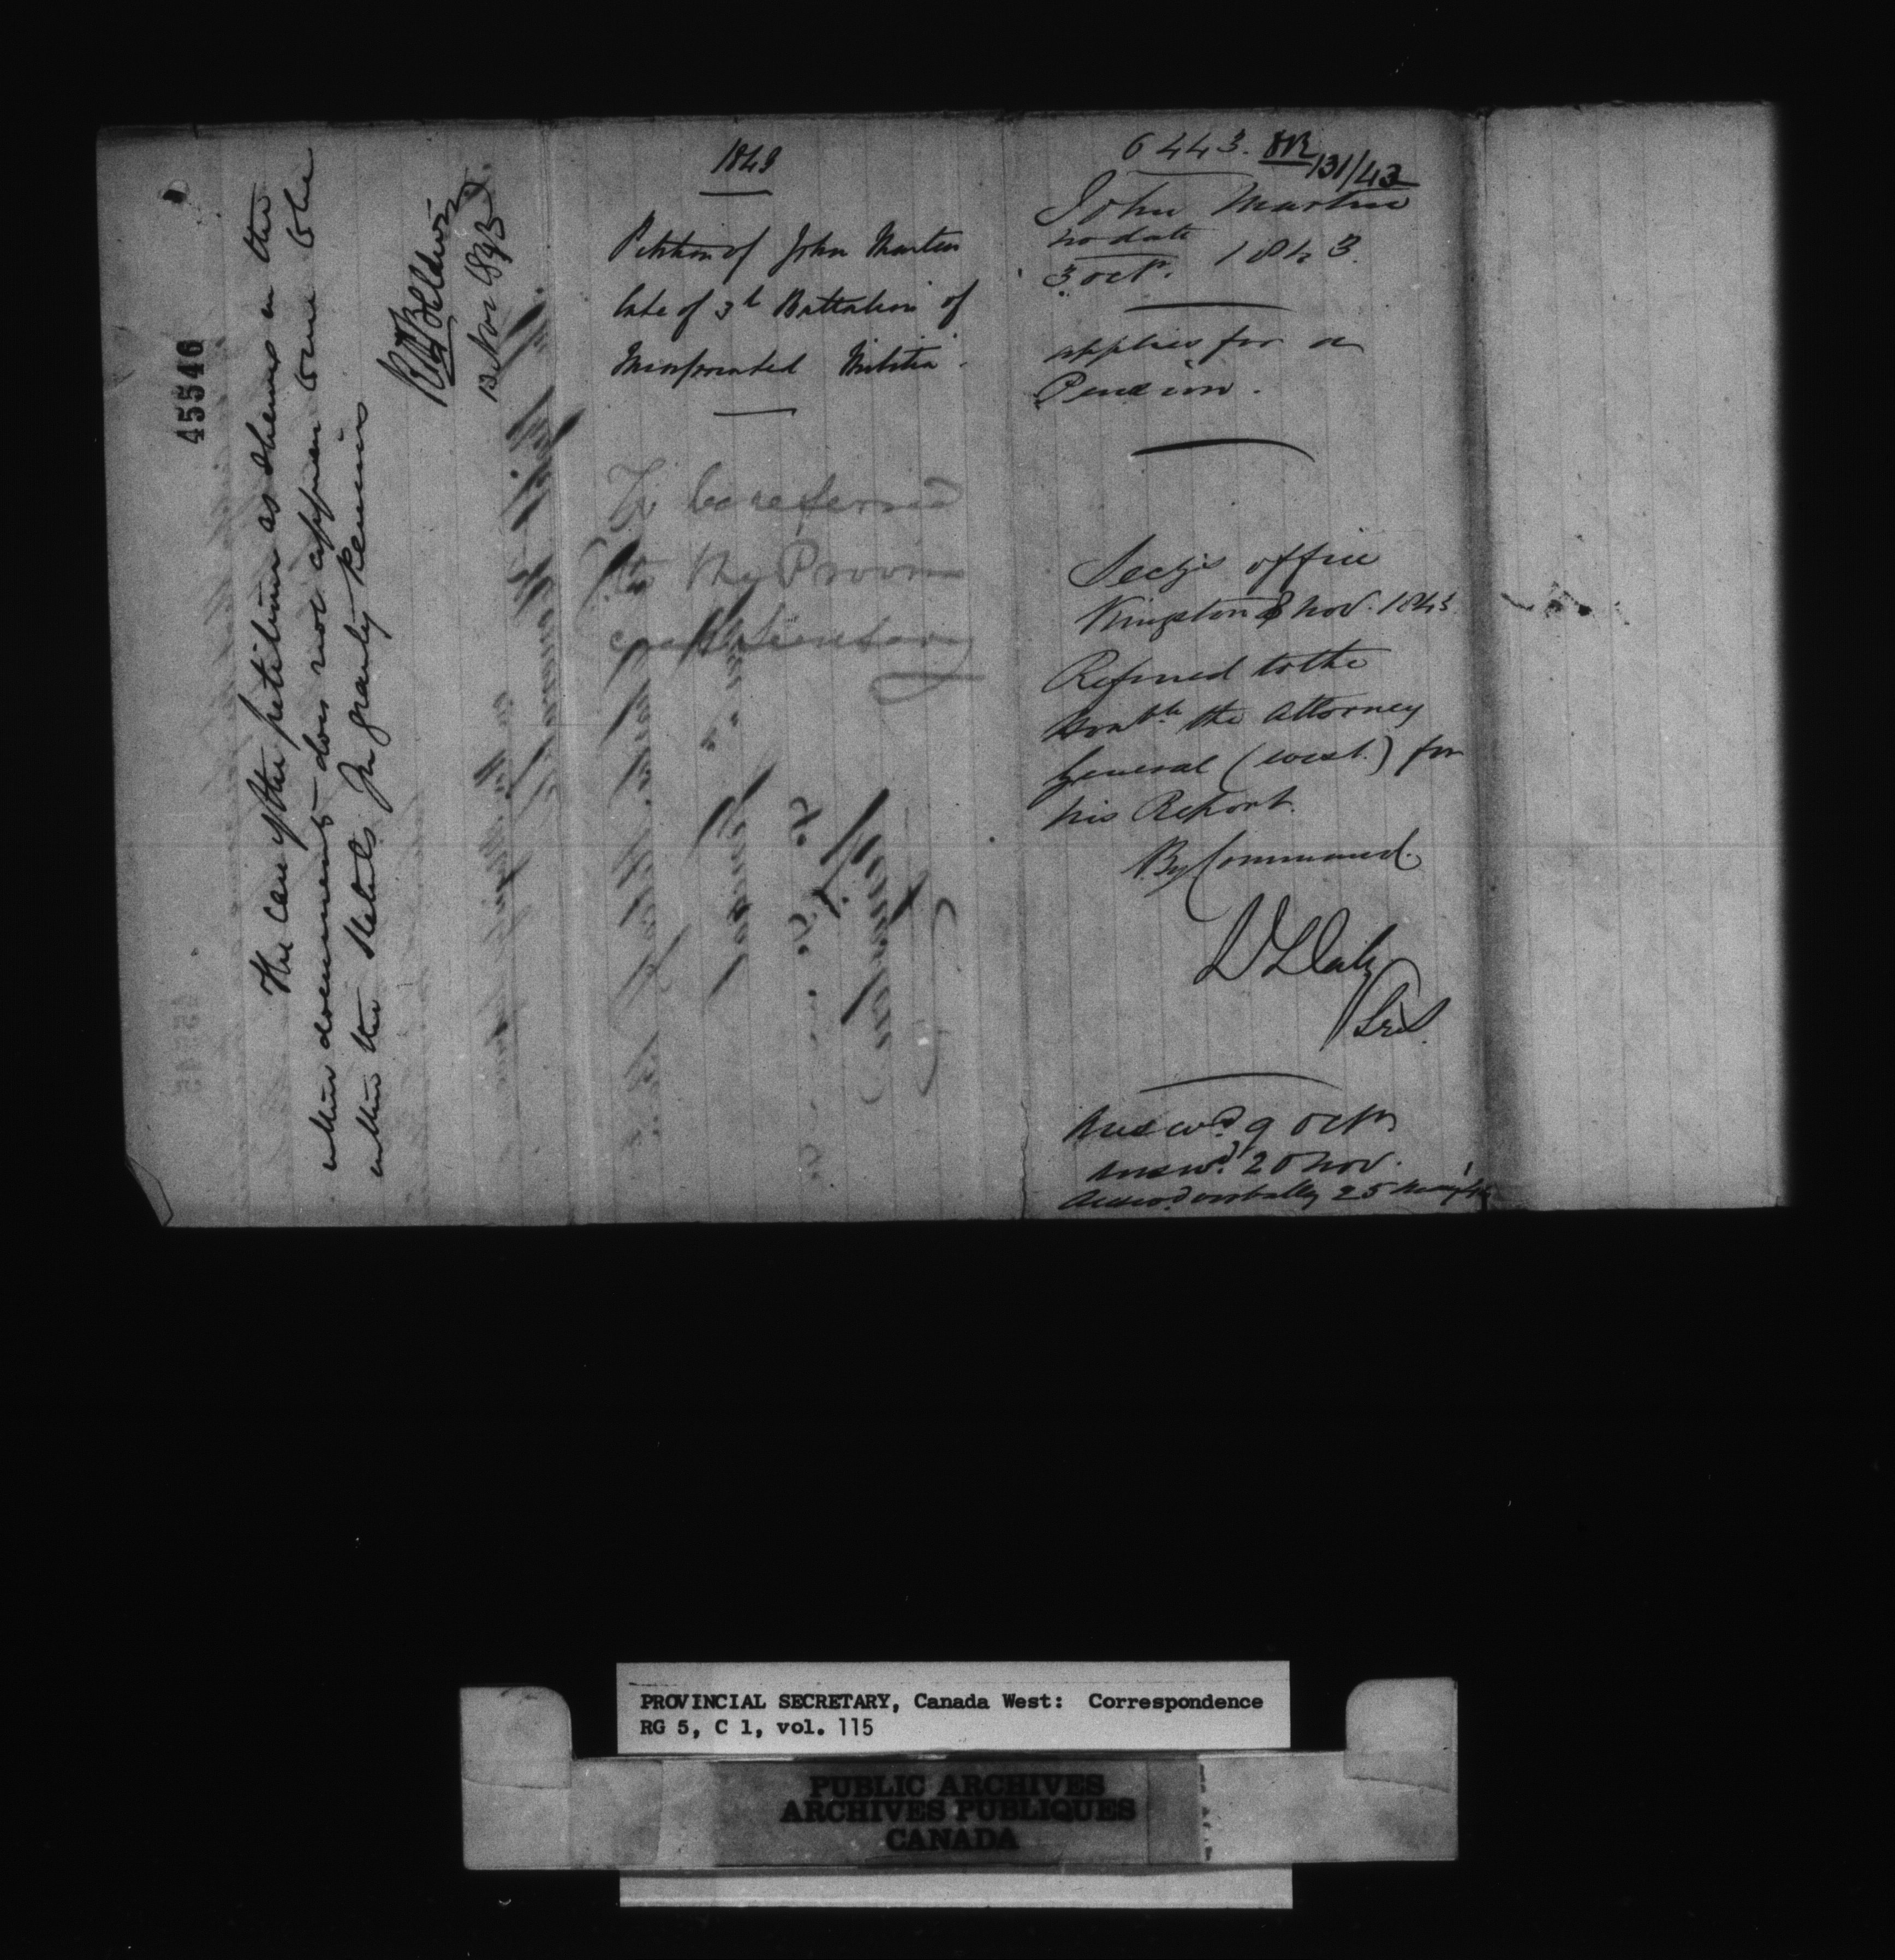 45546
The case of the petitioner as shewn in the
within documents does not appear to me to be
within the Statute granting Pensions
Robt Baldwin
13 Nov 1843
1843
Petition of John Martin
late of 3d Battalion of
Incorporated Militia.
To be referred
to the Provin
cial Secretary
6443. 131/43
John Martin
no date
3 Octr. 1843.
applies for a
Pension.
Secy's office
Kingston 8 Nov. 1843
Referred to the
Honble the Attorney
General (West.) for
his Report.
By Command.
D Daly
Sec.
Answd. 9 Octr
Answd. 20 Nov.
Answd verbally 25
PROVINCIAL SECRETARY, Canada West: Correspondence
RG 5, C 1, vol. 115
PUBLIC ARCHIVES
ARCHIVES PUBLIQUES
CANADA